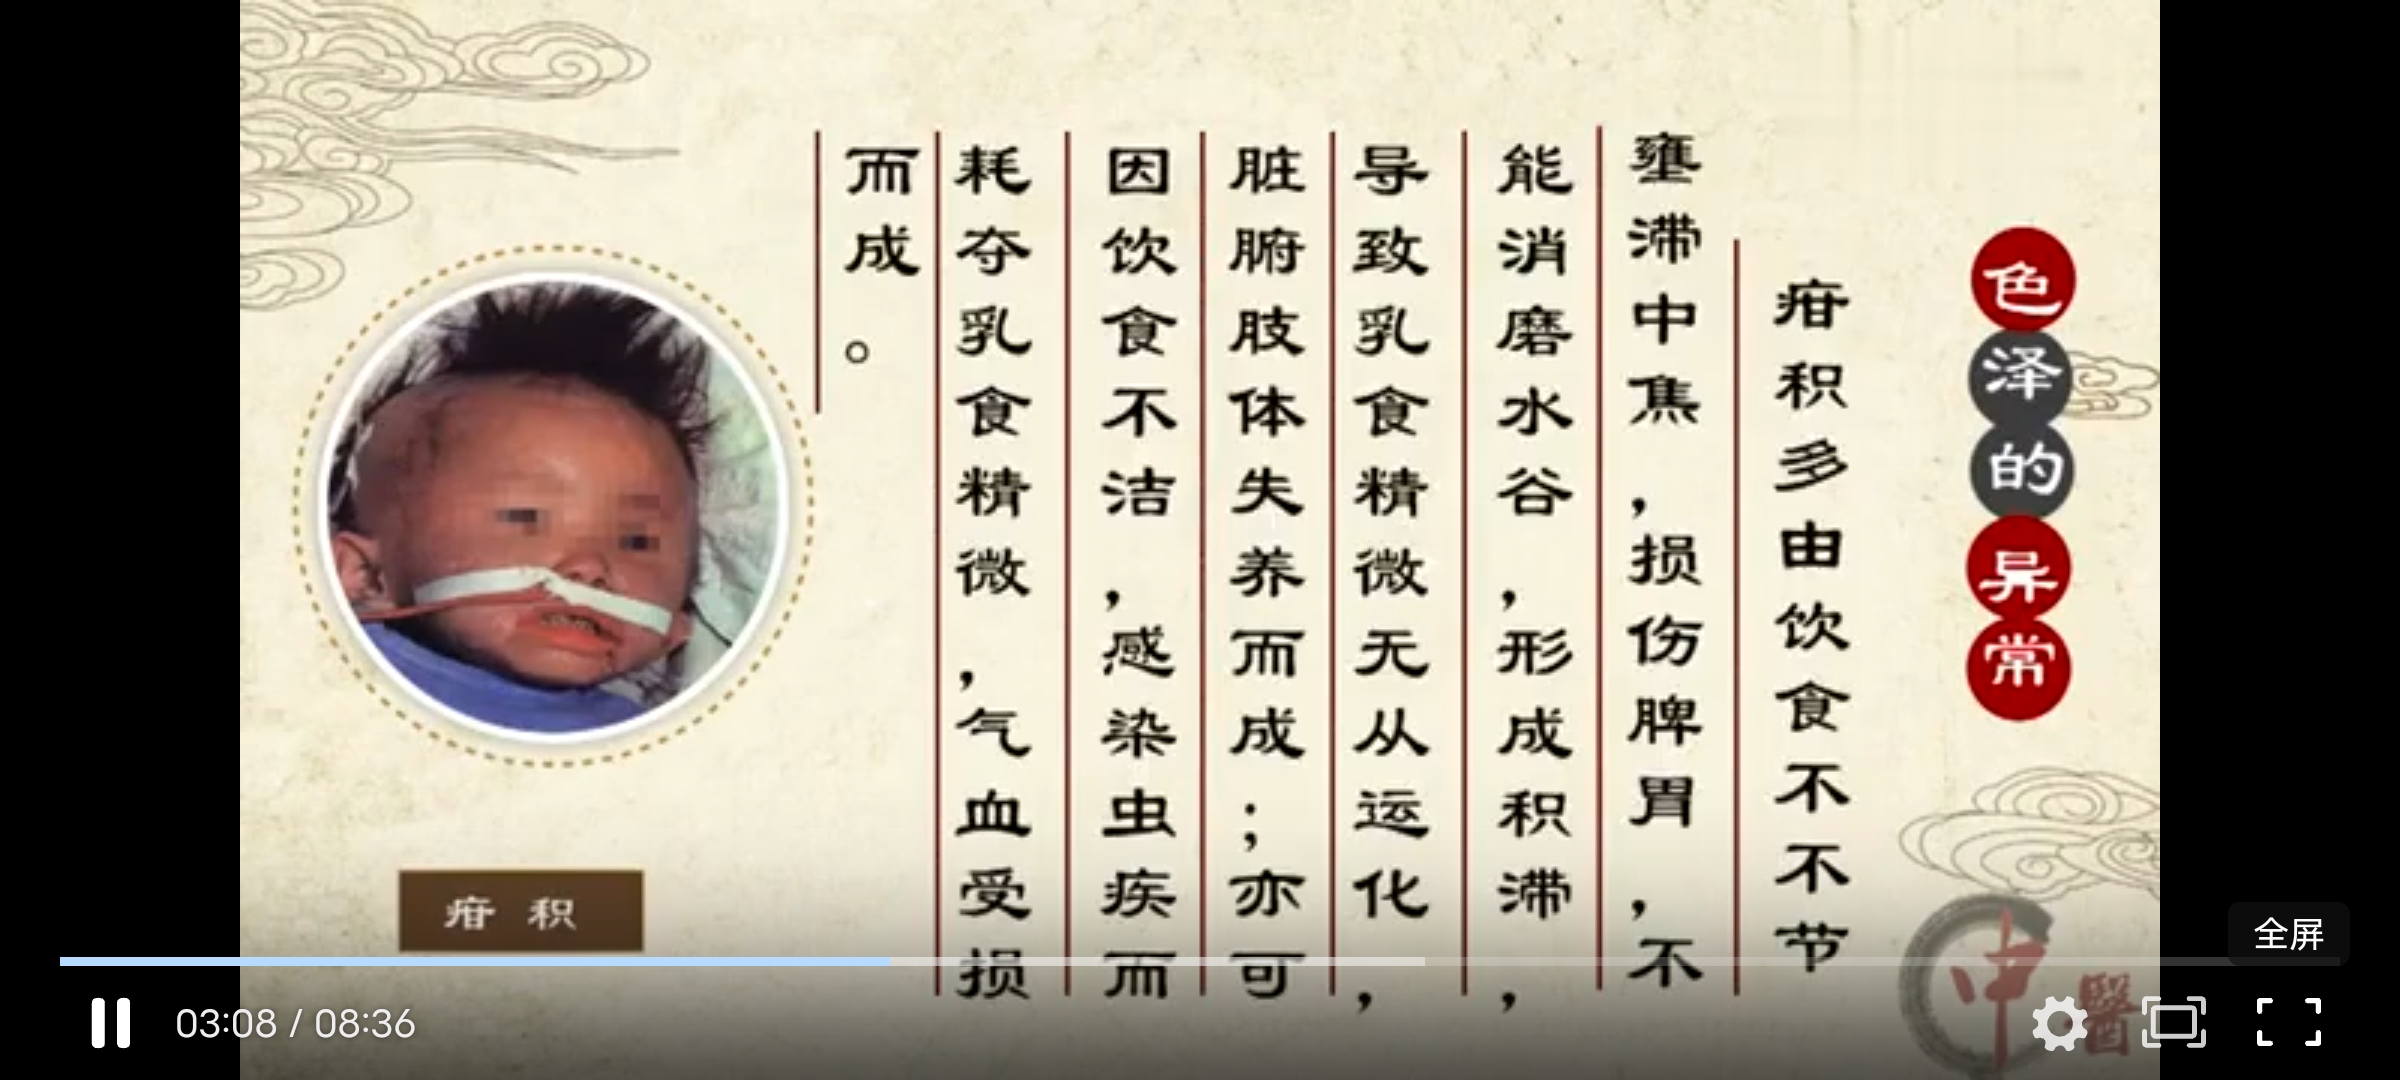 色泽的异常
疳积多由饮食不不节
壅滞中焦，损伤脾胃，不
能消磨水谷，形成积滞，
导致乳食精微无从运化，
脏腑肢体失养而成；亦可
因饮食不洁，感染虫疾而
耗夺乳食精微，气血受损
而成。
疳积
中醫
全屏
03:08 / 08:36